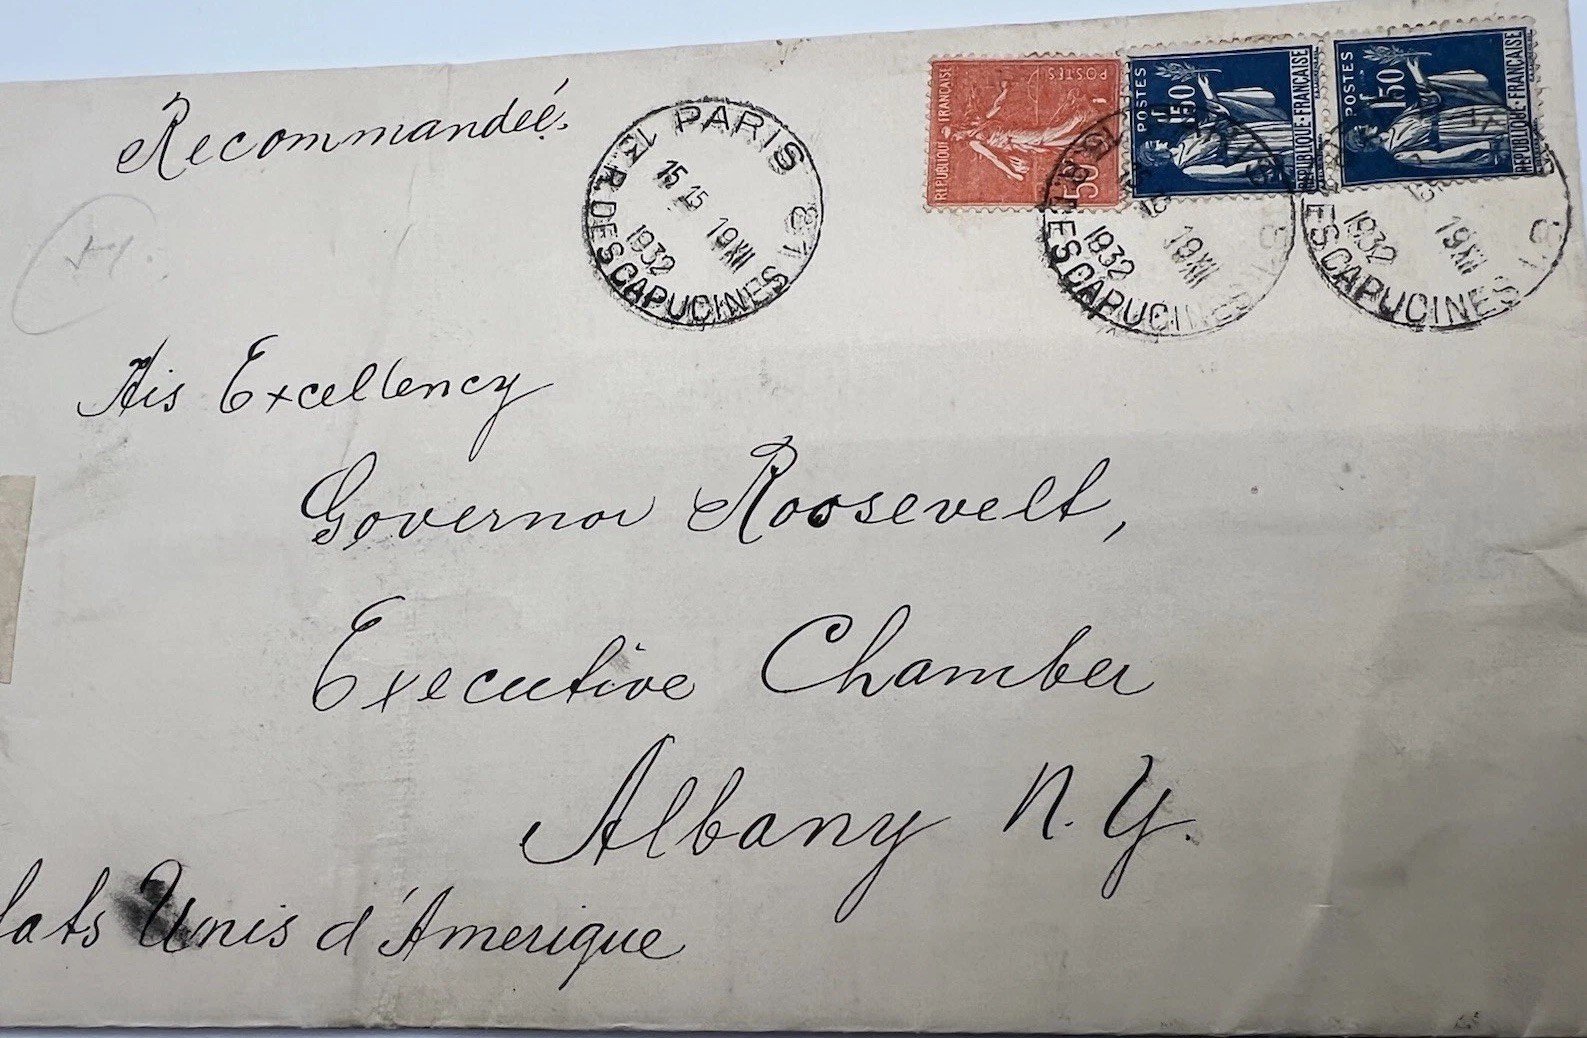 Recommandée.
PARIS 81
15 15
19 XII
1932
R. DES CAPUCINES
REPUBLIQUE FRANÇAISE
POSTES
50
POSTES
1f50
REPUBLIQUE·FRANÇAISE
POSTES
1f50
REPUBLIQUE·FRANÇAISE
19 XII
1932
ES CAPUCINES
19 XII
1932
ES CAPUCINES
His Excellency
Governor Roosevelt,
Executive Chamber
Albany N.Y.
tats Unis d'Amerique